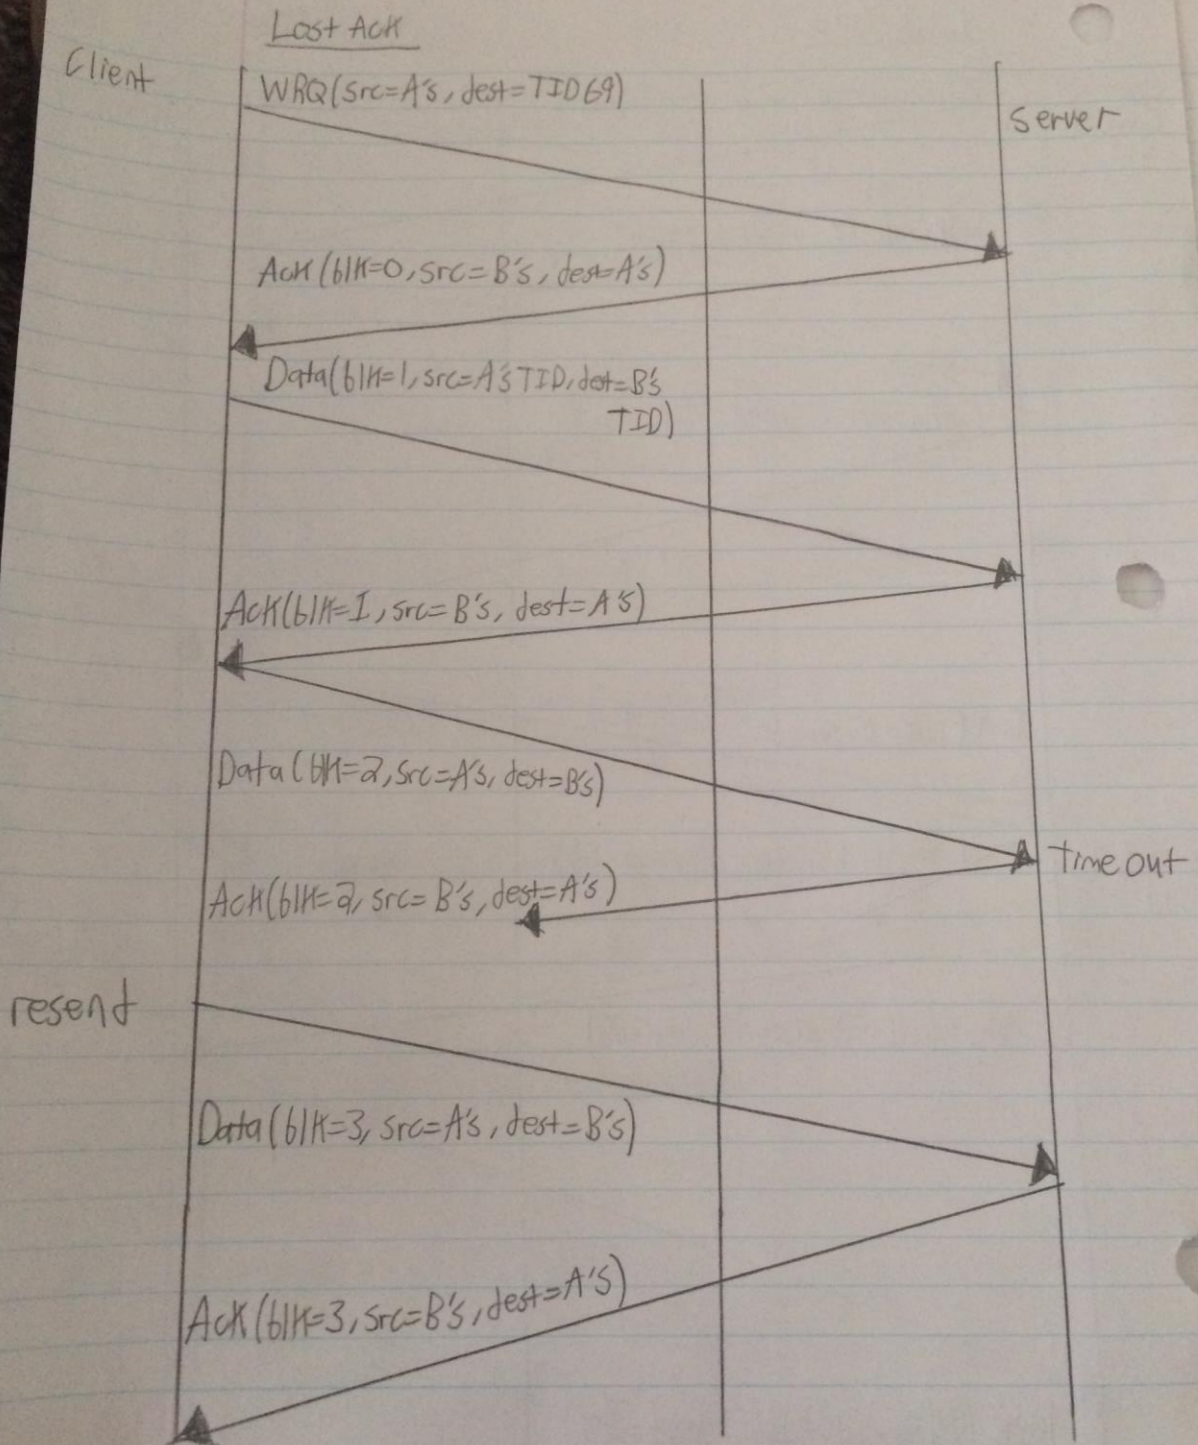 Lost Ack
Client
WRQ(src=A's, dest=TID69)
Server
Ack(blk=0, src=B's, dest=A's)
Data(blk=1, src=A's TID, det=B's
TID)
Ack(blk=1, src=B's, dest=A's)
Data(blk=2, src=A's, dest=B's)
Time out
Ack(blk=2, src=B's, dest=A's)
resend
Data(blk=3, src=A's, dest=B's)
Ack(blk=3, src=B's, dest=A's)